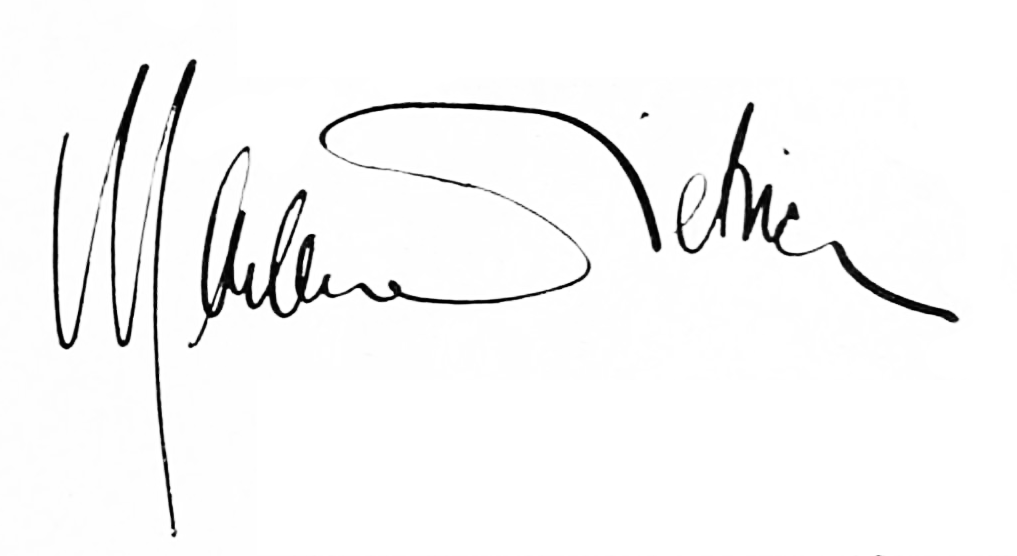 Marlene Dietrich